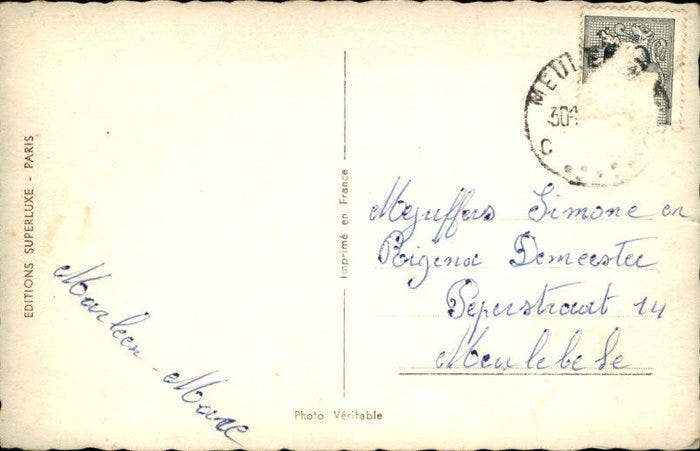 EDITIONS SUPERLUXE - PARIS
Marleen - Marc
Imprimé en France
Photo Véritable
MEULE
30-1
C
Mejuffers Simone en
Rigina Demeester
Peperstraat 14
Meulebeke